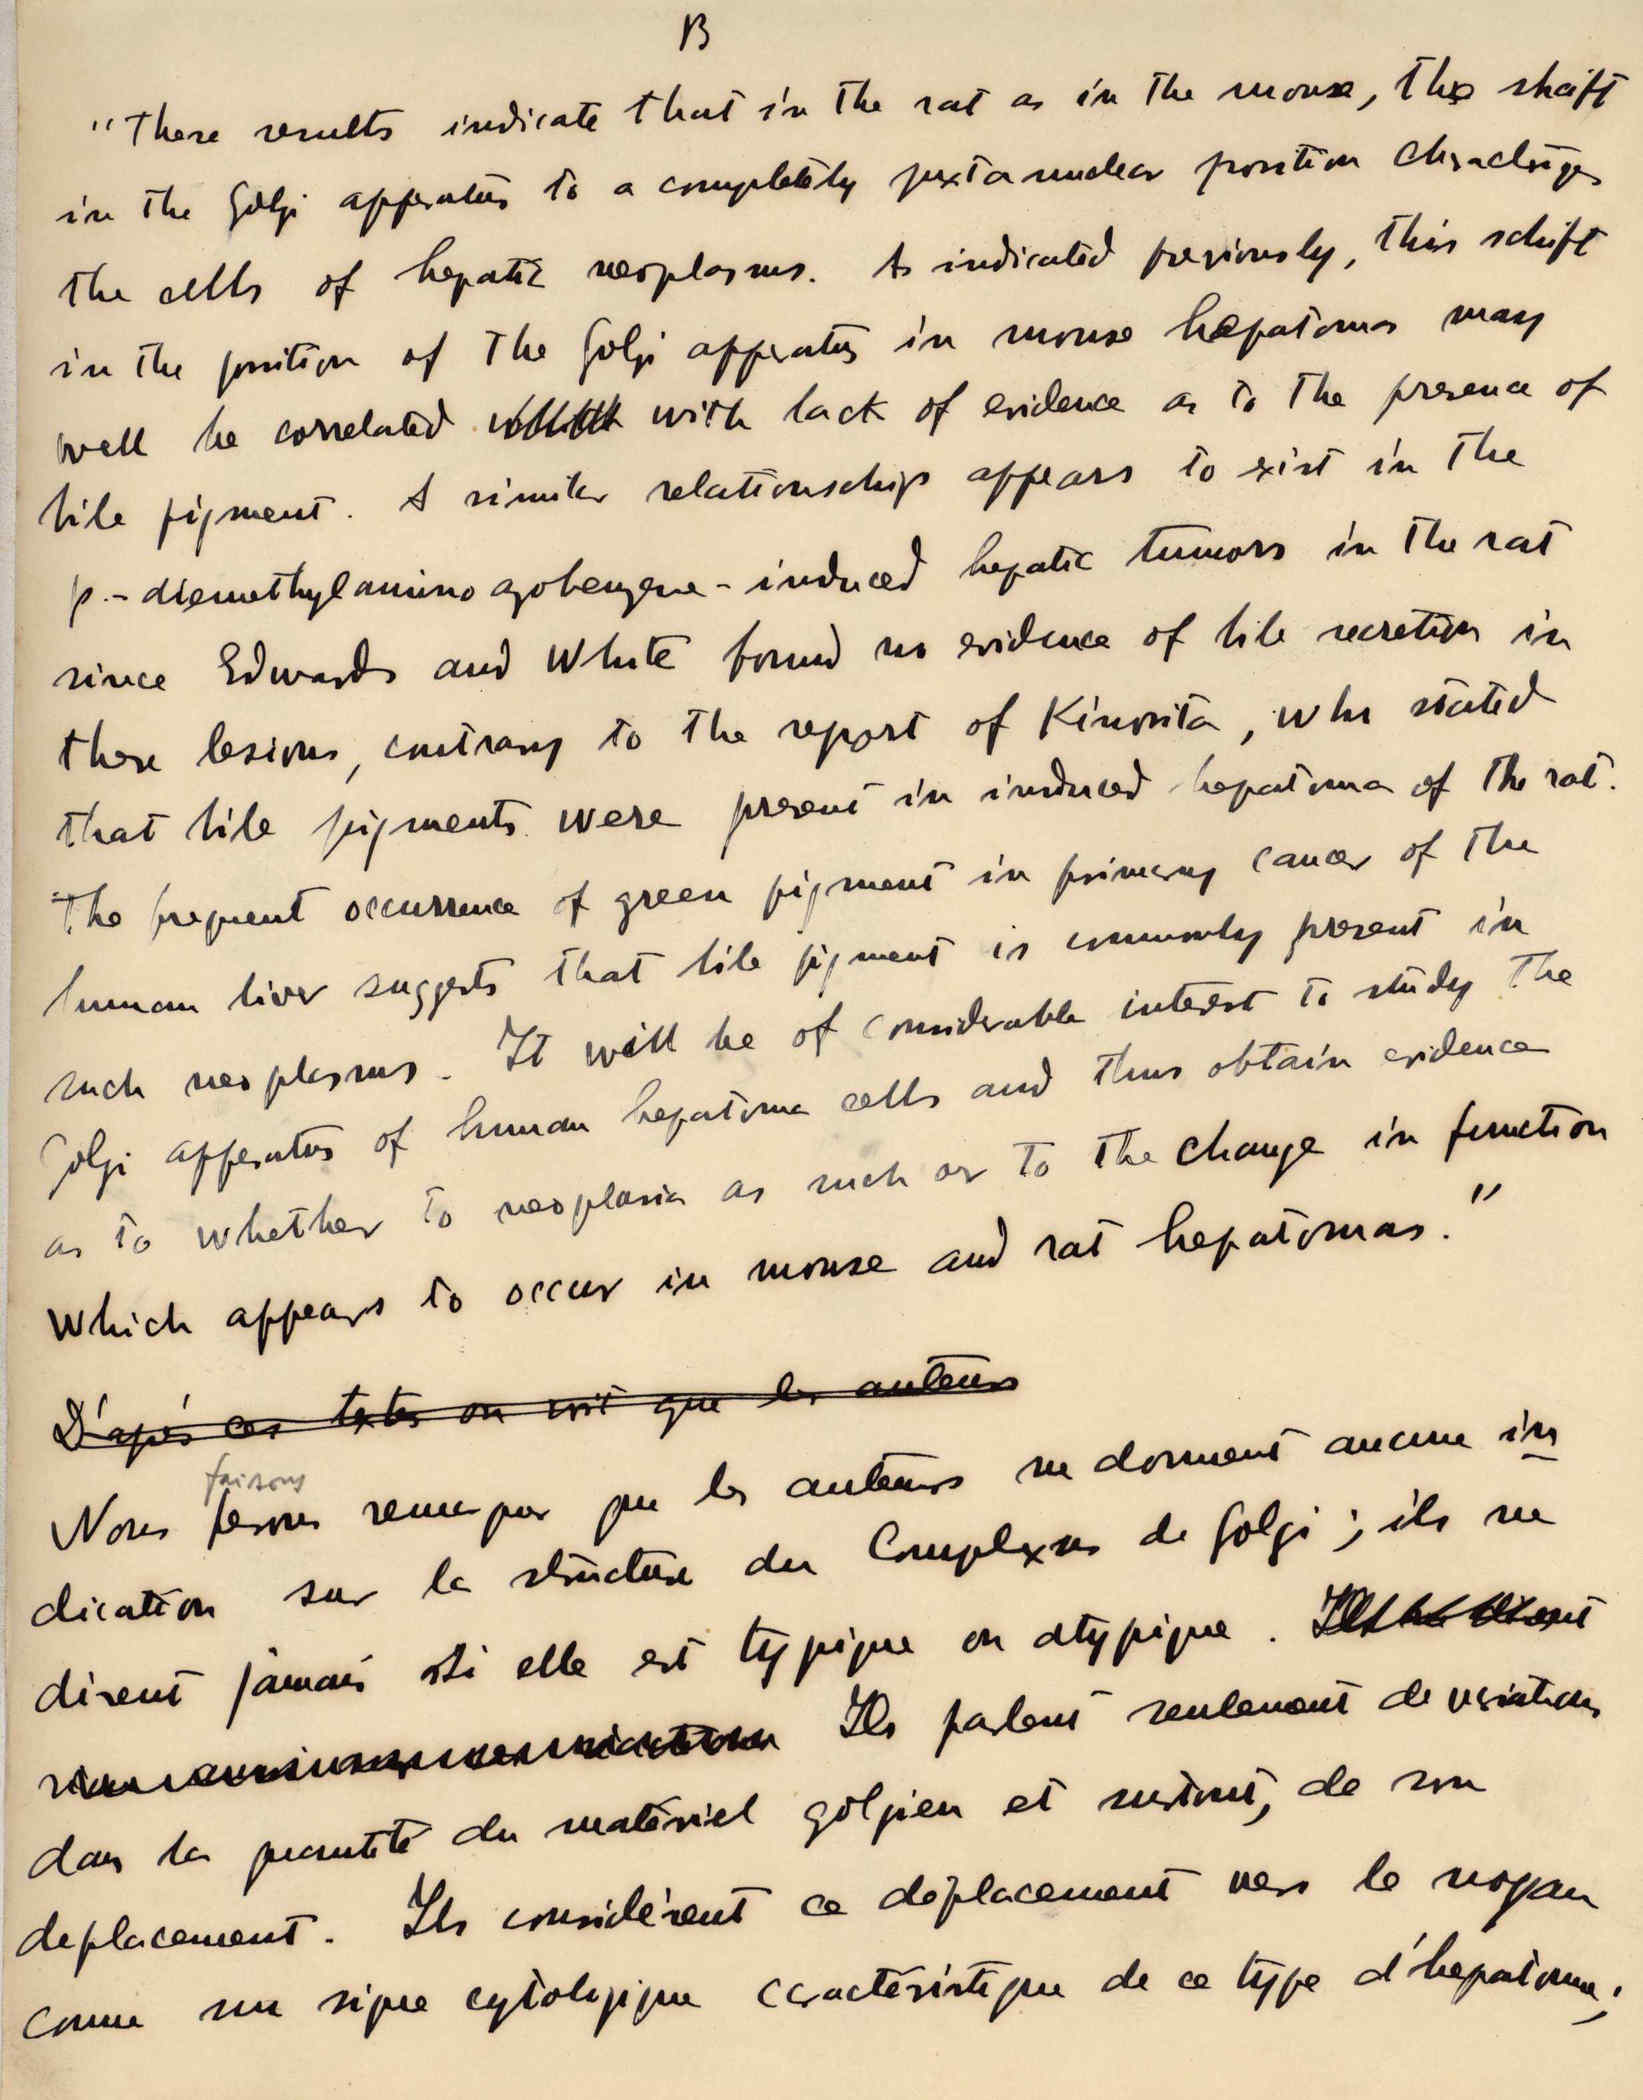 B
"These results indicate that in the rat as in the mouse, the shift
in the Golgi apparatus to a completely juxtanuclear position characterizes
the cells of hepatic neoplasms. As indicated previously, this schift
in the position of the Golgi apparatus in mouse hepatomas may
well be correlated with lack of evidence as to the presence of
bile pigment. A similar relationschip appears to exist in the
p.-diemethylaminoazobenzene-induced hepatic tumors in the rat
since Edwards and White found no evidence of bile secretion in
these lesions, contrary to the report of Kinosita, who stated
that bile pigments were present in induced hepatoma of the rat.
The frequent occurrence of green pigment in primary cancer of the
human liver suggests that bile pigment is commonly present in
such neoplasms. It will be of considerable interest to study the
Golgi apparatus of human hepatoma cells and thus obtain evidence
as to whether to neoplasia as such or to the change in function
which appears to occur in mouse and rat hepatomas."
D'après ces textes on voit que les auteurs
faisons
Nous fesons remarquer que les auteurs ne donnent aucune in
dication sur la structure du Complexus de Golgi; ils ne
disent jamais si elle est typique ou atypique.
Ils parlent seulement de variations
dans la quantité du matériel golgien et surtout, de son
deplacement. Ils considèrent ce déplacement vers le noyau
comme un signe cytologique caractéristique de ce type d'hepatome;